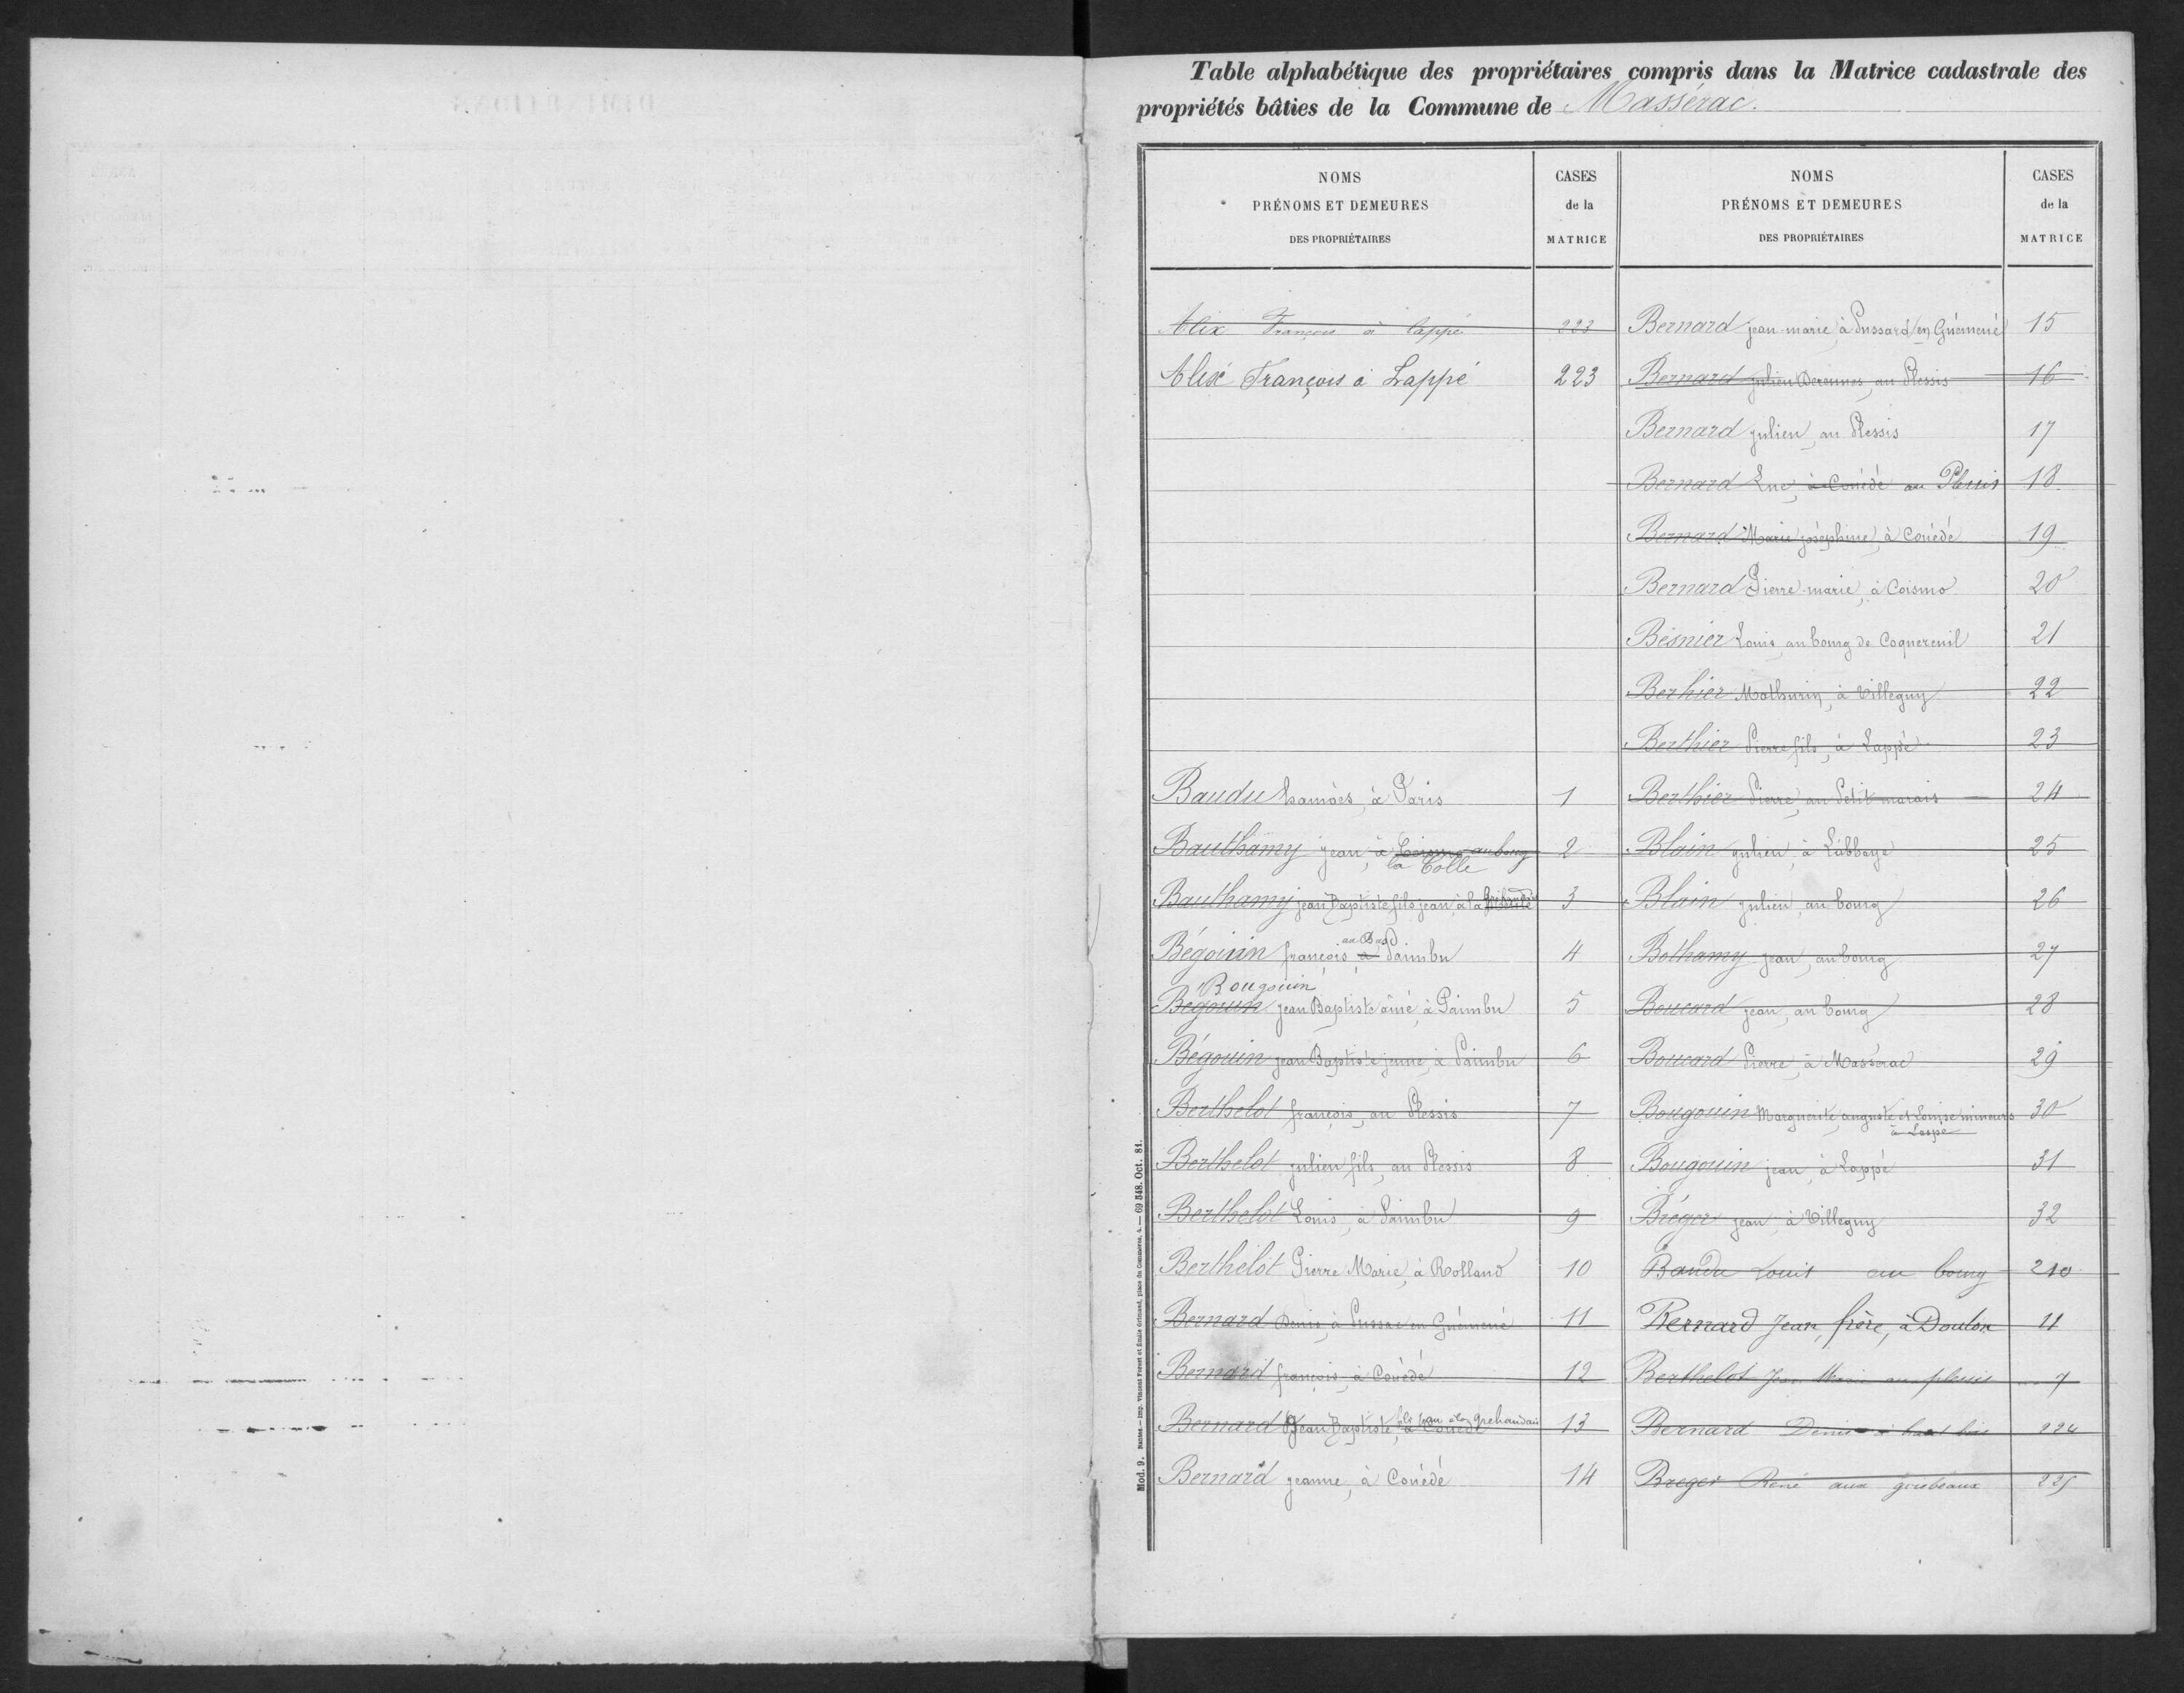 Table alphabétique des propriétaires compris dans la Matrice cadastrale des
propriétés bâties de la Commune de Massérac.
NOMS
PRÉNOMS ET DEMEURES
DES PROPRIÉTAIRES
CASES
de la
MATRICE
Alix François à Lappé 223
Alix François à Lappé 223
Baudu hamöes, à Paris 1
Bauthamy jean, à Coismo au bourg 2
la Colle
Bauthamy jean Baptiste fils jean, à la 3
au Bas
Bégouin françois à Paimbu 4
Bougouin
Bégouin jean Baptiste aîné, à Paimbu 5
Bégouin jean Baptiste jeune, à Paimbu 6
Berthelot françois, au Plessis 7
Berthelot julien fils, au Plessis 8
Berthelot Louis, à Paimbu 9
Berthelot Pierre Marie, à Rolland 10
Bernard Denis, à Pussac en Guémené 11
Bernard françois, à Couëdé 12
Bernard Jean Baptiste, fils jean à la Grehandais à Couëdé 13
Bernard jeanne, à Couëdé 14
NOMS
PRÉNOMS ET DEMEURES
DES PROPRIÉTAIRES
CASES
de la
MATRICE
Bernard jean-marie, à Pussard en Guémené 15
Bernard julien Derennes, au Plessis 16
Bernard julien, au Plessis 17
Bernard Luc, à Couëdé au Plessis 18
Bernard Marie joséphine, à Couëdé 19
Bernard Pierre-marie, à Coismo 20
Besnier Louis, au bourg de Coquereuil 21
Berhier Mathurin, à Villeguy 22
Berthier Pierre fils, à Lappé 23
Berthier Pierre, au Petit marais 24
Blain julien, à L'abbaye 25
Blain julien, au bourg 26
Bothamy jean, au bourg 27
Boucard jean, au bourg 28
Boucard Pierre, à Massérac 29
Bougouin Marguerite, auguste et Louise mineurs 30
à Laspe
Bougouin jean, à Lappé 31
Bréger jean, à Villeguy 32
Baudu Louis au bourg 210
Bernard Jean, frère, à Doulon 11
Berthelot Jean Marie au plessis 7
Bernard Denis à haut bois 224
Breger René aux goubeaux 225
Mod. 9. Nantes. — Imp. Vincent Forest et Émile Grimaud, place du Commerce, 4. — 69 548. Oct. 81.